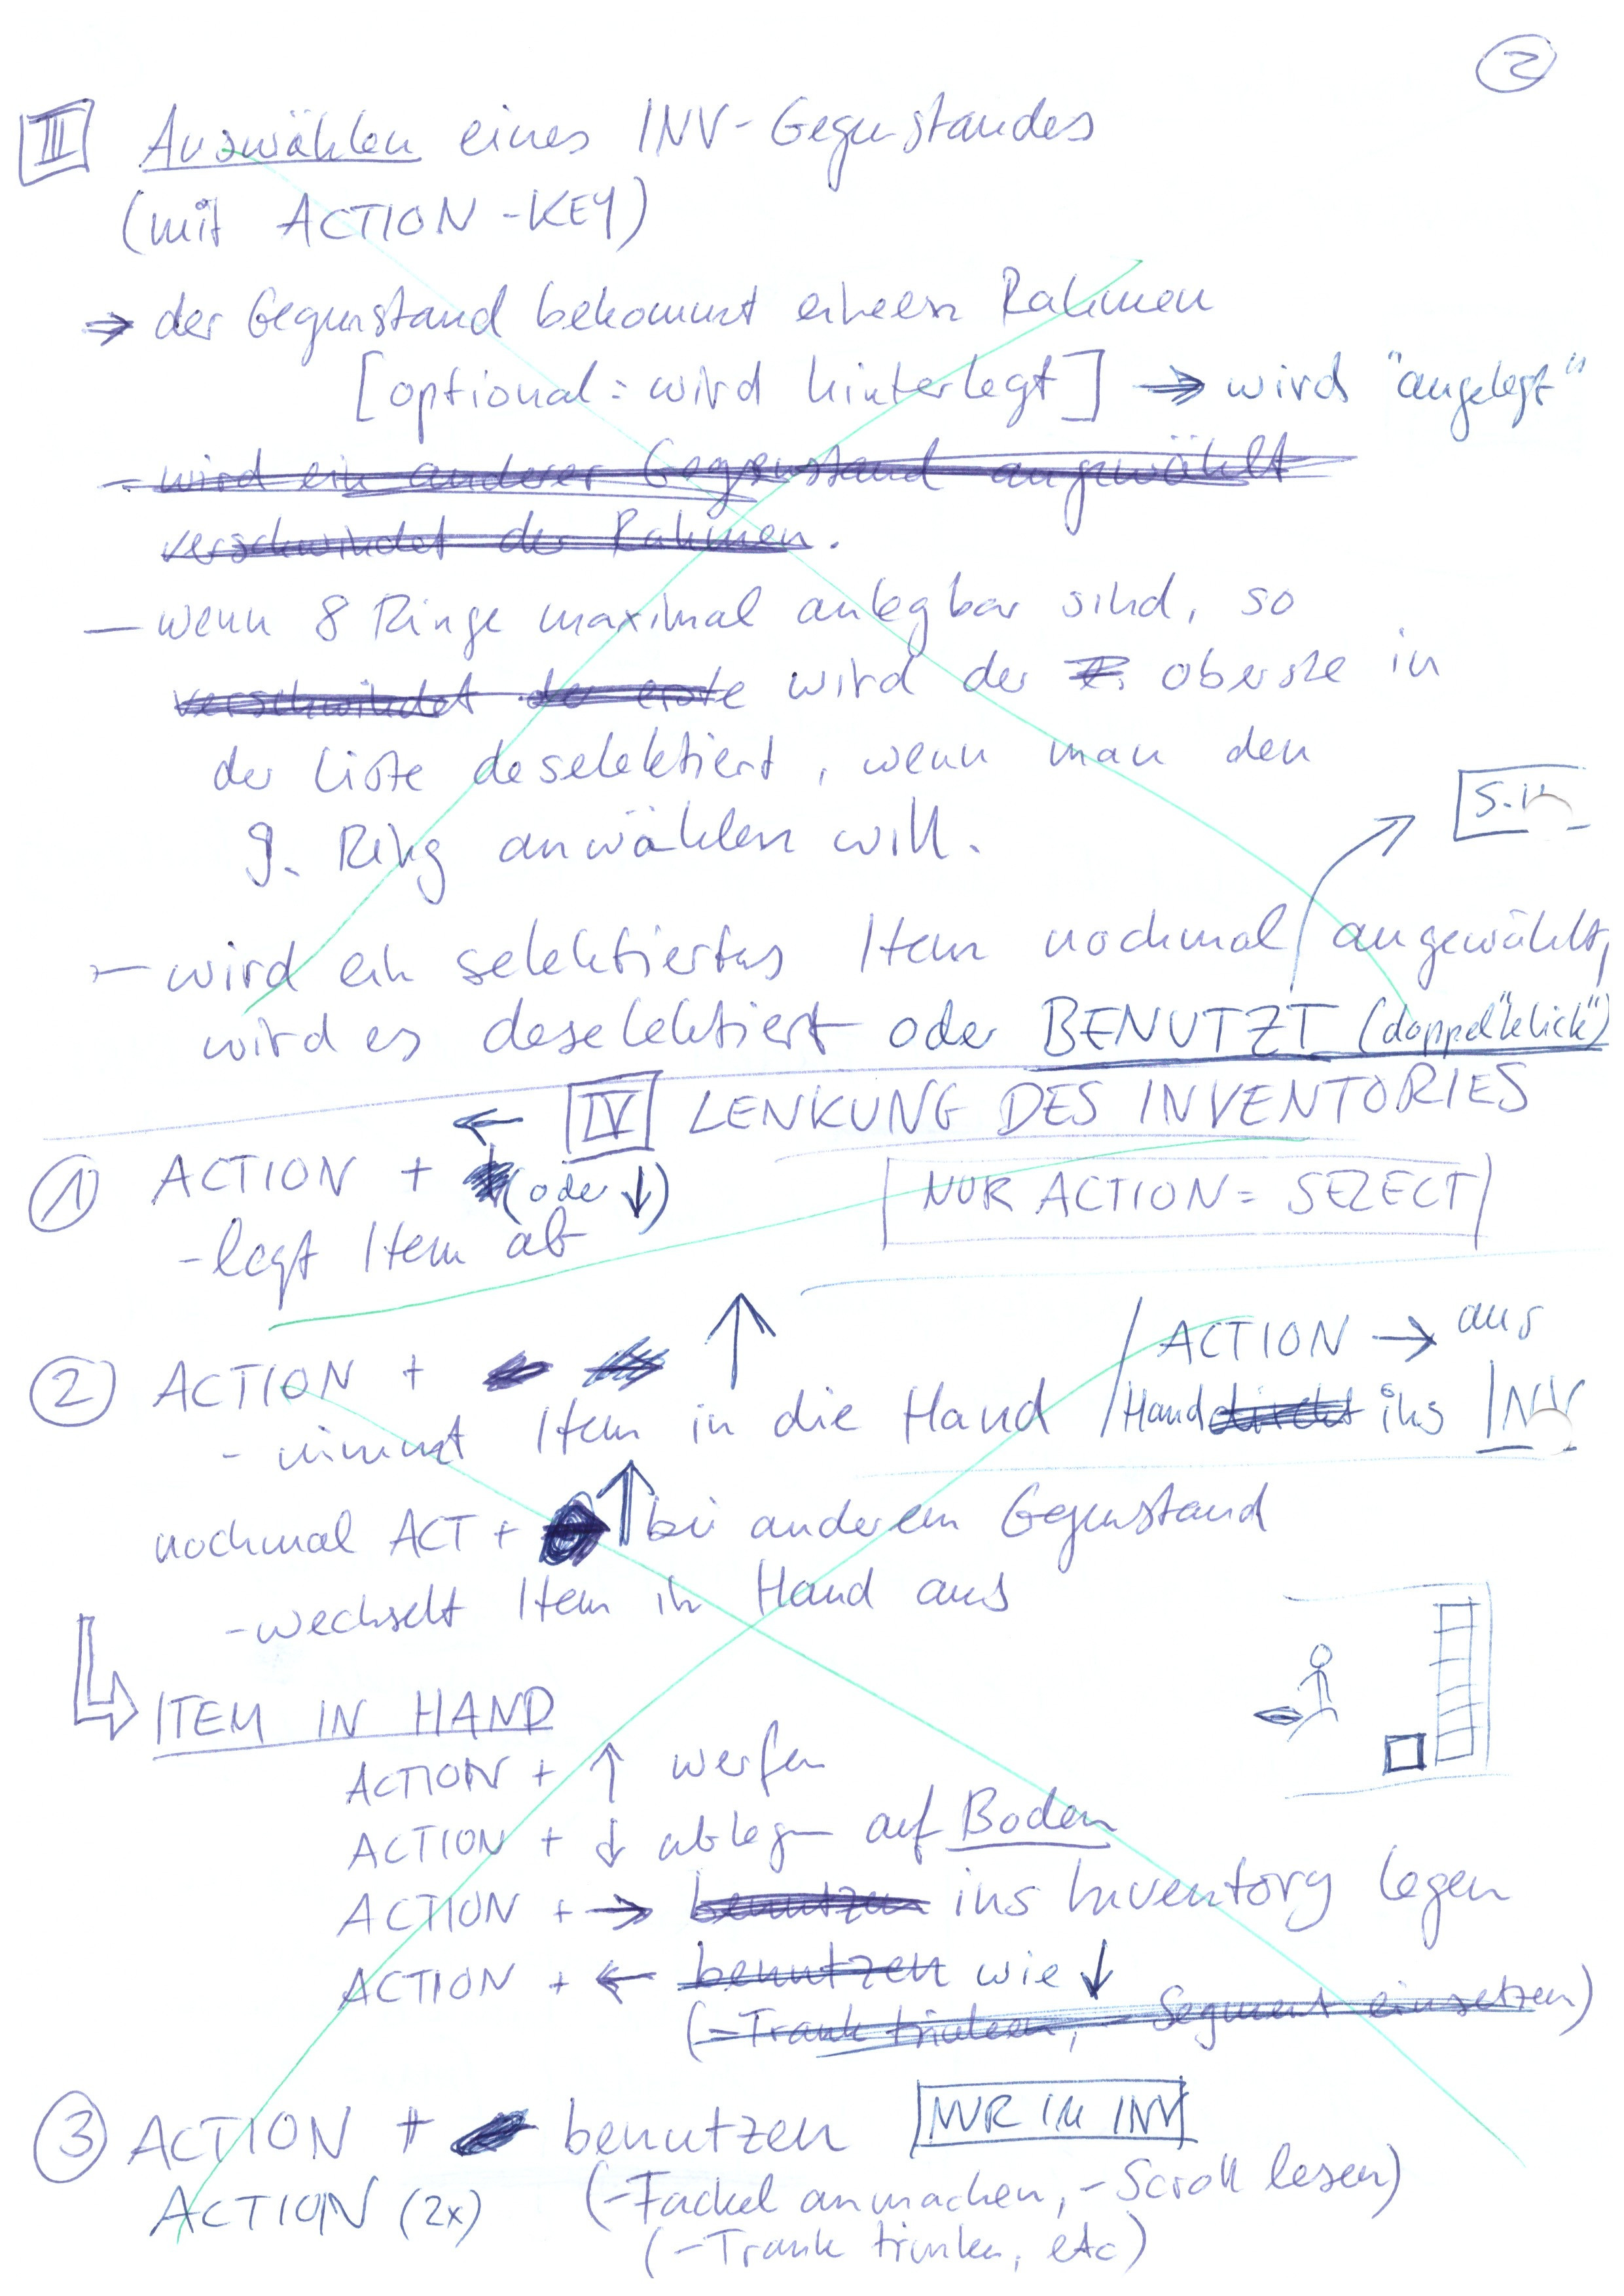 2
III Auswählen eines INV-Gegenstandes
(mit ACTION-KEY)
⇒ der Gegenstand bekommt einen Rahmen
[optional: wird hinterlegt] → wird "angelegt"
- wird ein anderer Gegenstand angewählt
verschwindet der Rahmen.
- wenn 8 Ringe maximal anlegbar sind, so
verschwindet der erste wird der oberste in
der Liste deselektiert, wenn man den
9. Ring anwählen will.
- wird ein selektiertes Item nochmal angewählt,
wird es deselektiert oder BENUTZT (doppel"klick")
← IV LENKUNG DES INVENTORIES
① ACTION + (oder ↓)
NUR ACTION = SELECT
- legt Item ab
② ACTION + ↑
- nimmt Item in die Hand
/ ACTION → aus
Hand direkt ins INV
nochmal ACT + ↑ bei anderem Gegenstand
- wechselt Item in Hand aus
↳ ITEM IN HAND
ACTION + ↑ werfen
ACTION + ↓ ablegen auf Boden
ACTION + → benutzen ins Inventory legen
ACTION + ← benutzen wie ↓
(- Trank trinken, - Segment einsetzen)
③ ACTION + benutzen NUR IM INV
ACTION (2x) (- Fackel anmachen, - Scroll lesen)
(- Trank trinken, etc)